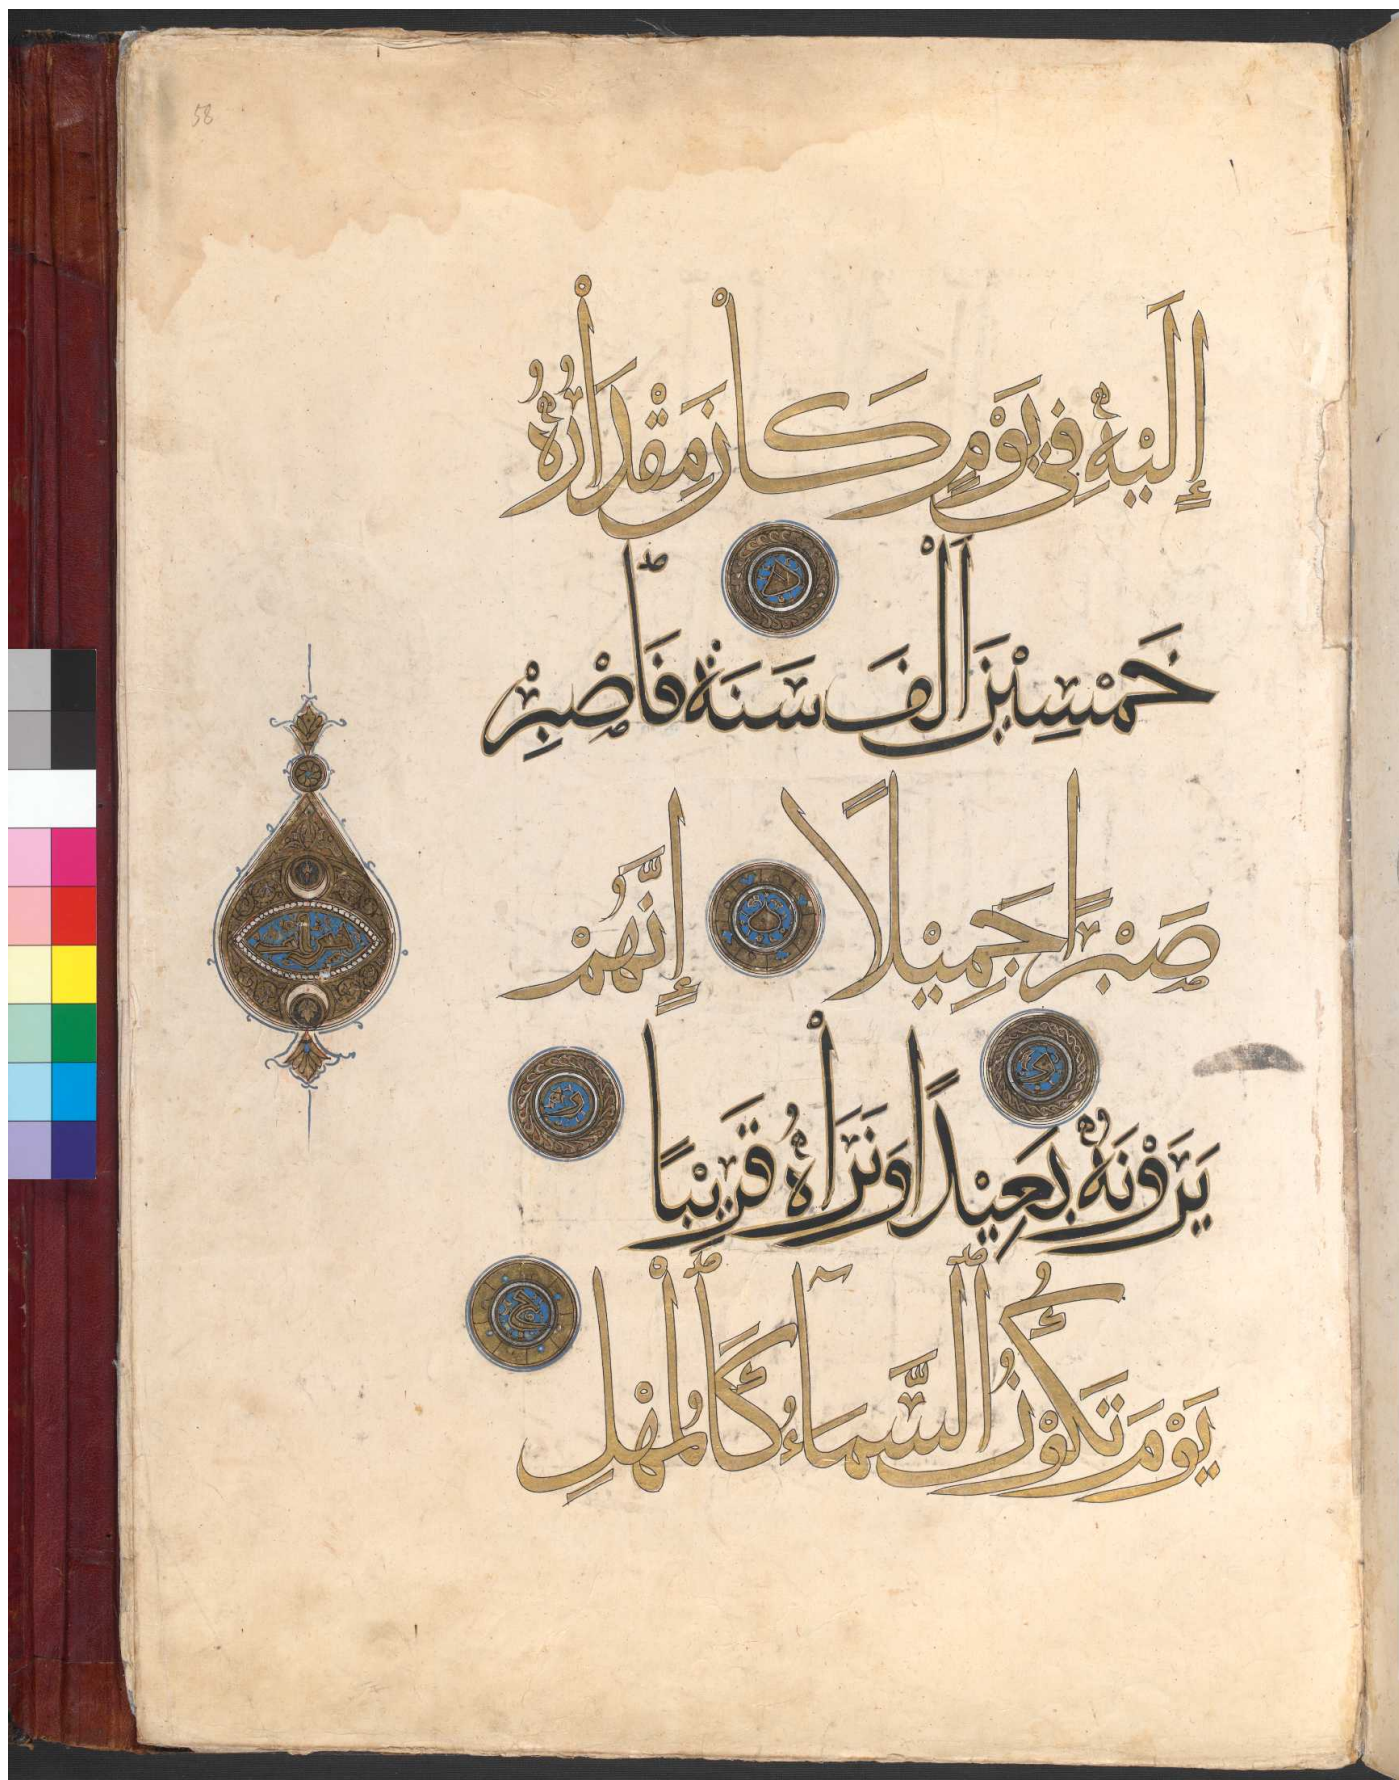 58
إِلَيْهِ فِي يَوْمٍ كَانَ مِقْدَارُهُ
خَمْسِينَ أَلْفَ سَنَةٍ فَاصْبِرْ
صَبْرًا جَمِيلًا إِنَّهُمْ
يَرَوْنَهُ بَعِيدًا وَنَرَاهُ قَرِيبًا
يَوْمَ تَكُونُ السَّمَاءُ كَالْمُهْلِ